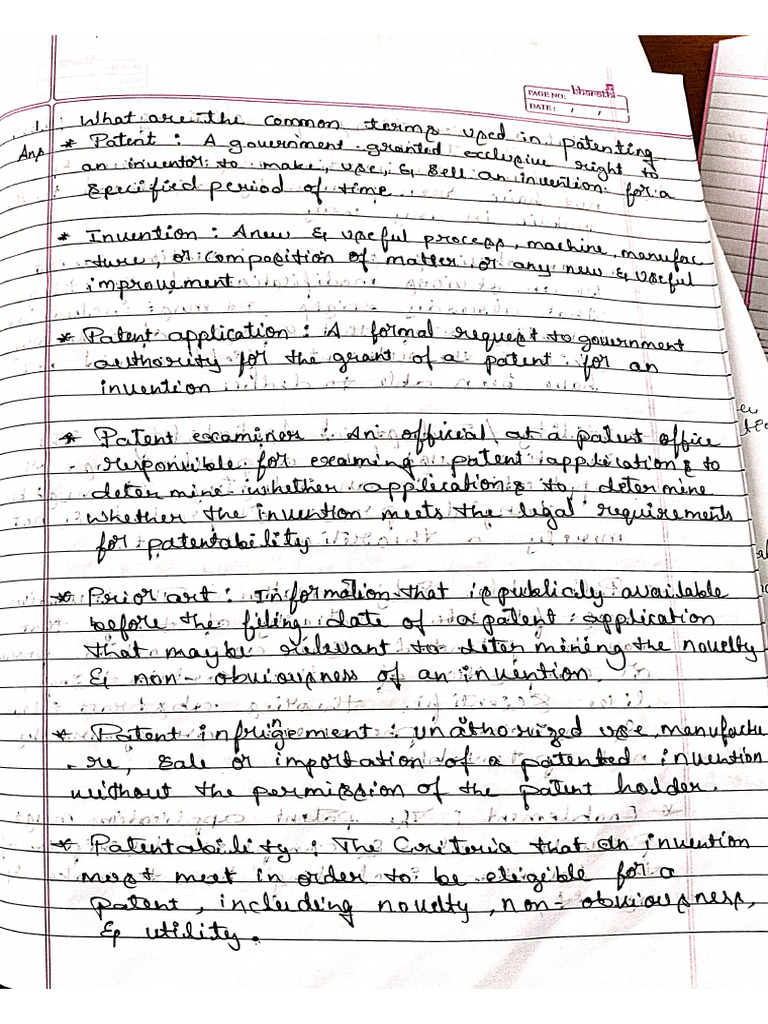 PAGE NO: bharathi
DATE: / /
1. What are the common terms used in patenting
Ans * Patent : A government granted exclusive right to
an inventor to make, use, & sell an invention for a
specified period of time
* Invention : A new & useful process, machine, manufac
ture, or composition of matter or any new & useful
improvement
* Patent application : A formal request to government
authority for the grant of a patent for an
invention
* Patent examiner : An official at a patent office
responsible for examing patent applications to
determine whether applications to determine
whether the invention meets the legal requirements
for patentability
* Prior art : Information that is publicily available
before the filing date of a patent application
that maybe relevant to determining the novelty
& non-obviousness of an invention.
* Patent infringement : unathorized use, manufactu
-re, sale or importation of a patented invention
without the permission of the patent holder.
* Patentability : The Criteria that an invention
must meet in order to be eligible for a
patent, including novelty, non-obviousness,
& utility.